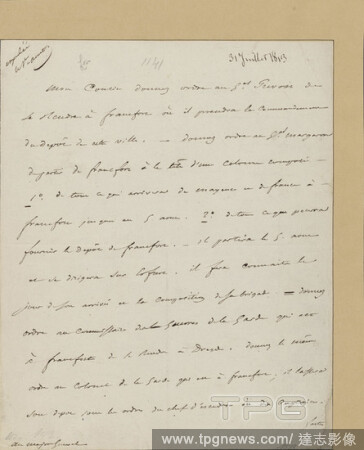 expédié
le 1er août
31 Juillet 1813
Mon Cousin donnez ordre au Gal de
se rendre à francfort où il prendra le commandement
du dépôt de cette ville. — donnez ordre au Gal margaron
de partir de francfort à la tête d'une colonne composée —
1° de tout ce qui arrivera de mayence et de france à —
francfort jusqu'au 5 aout. 2° de tout ce que pourra
fournir le dépôt de francfort. — il partira le 5 aout
et se dirigera sur Erfurt. il fera connaitre le
jour de son arrivée et la composition de sa brigade — donnez
ordre au Commissaire des Guerres de la Garde qui est
à francfort de se rendre à Dresde. donnez le même
ordre au Colonel de la Garde qui est à francfort, il laissera
son dépôt sous les ordres du chef d'escadron
au major Général
TPG
www.tpgnews.com/達志影像